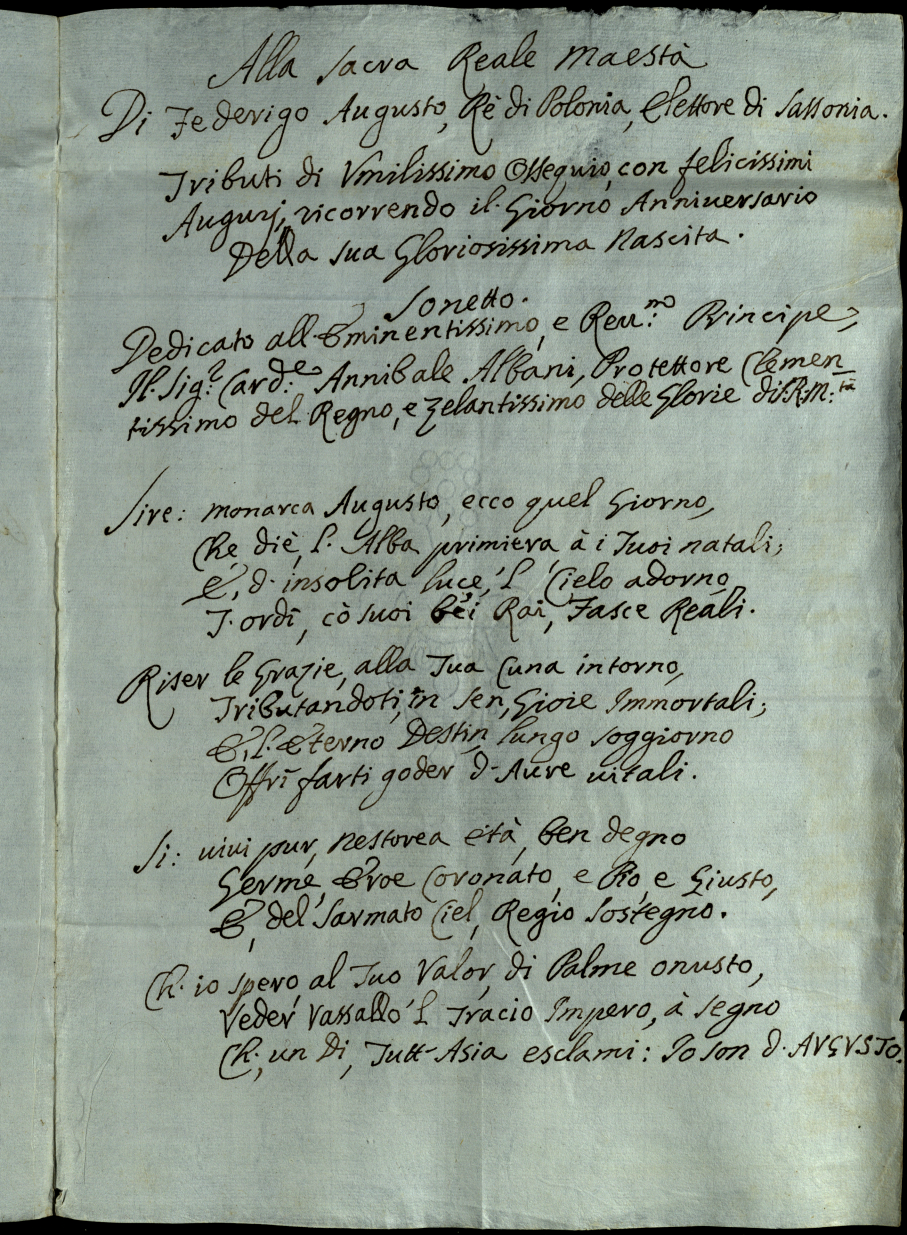 Alla Sacra Reale Maestà
Di Federigo Augusto, Rè di Polonia, Elettore di Sassonia.
Tributi di Vmilissimo Ossequio, con felicissimi
Augurj, ricorrendo il Giorno Anniuersario
Della sua Gloriosissima Nascita.
Sonetto.
Dedicato all'Eminentissimo, e Reu:mo Principe,
Il Sig:r Card:e Annibale Albani, Protettore Clemen_
tissimo del Regno, e zelantissimo delle Glorie di S.R.M:tà
Sire: Monarca Augusto, ecco quel Giorno,
Che diè, l'Alba primiera à i Tuoi natali;
E, d'insolita luce, 'l Cielo adorno,
T'ordì, cò suoi bei Rai, Fasce Reali.
Riser le Grazie, alla Tua Cuna intorno,
Tributandoti, in sen, Gioie Immortali;
E, l'Eterno Destin, lungo soggiorno
Offrì farti goder d'Aure uitali.
Si: uiui pur, Nestorea età, ben degno
Germe, Eroe Coronato, e Pio, e Giusto,
E, del Sarmato Ciel, Regio Sostegno.
Ch'io spero, al Tuo Valor, di Palme onusto,
Veder Vassallo 'l Tracio Impero, à segno
Ch', un Di, Tutt'Asia esclami: Io son d'AVGVSTO.